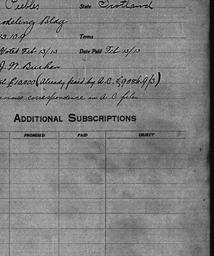 Peebles State Scotland
odeling Bldg
Terms
Voted Feb 13/13 Date Paid Feb 13/13
J. W. Buchan
£10000 (Already paid by A.C. £9086.9/3)
correspondence in A.C. files
ADDITIONAL SUBSCRIPTIONS
PROMISED PAID OBJECT